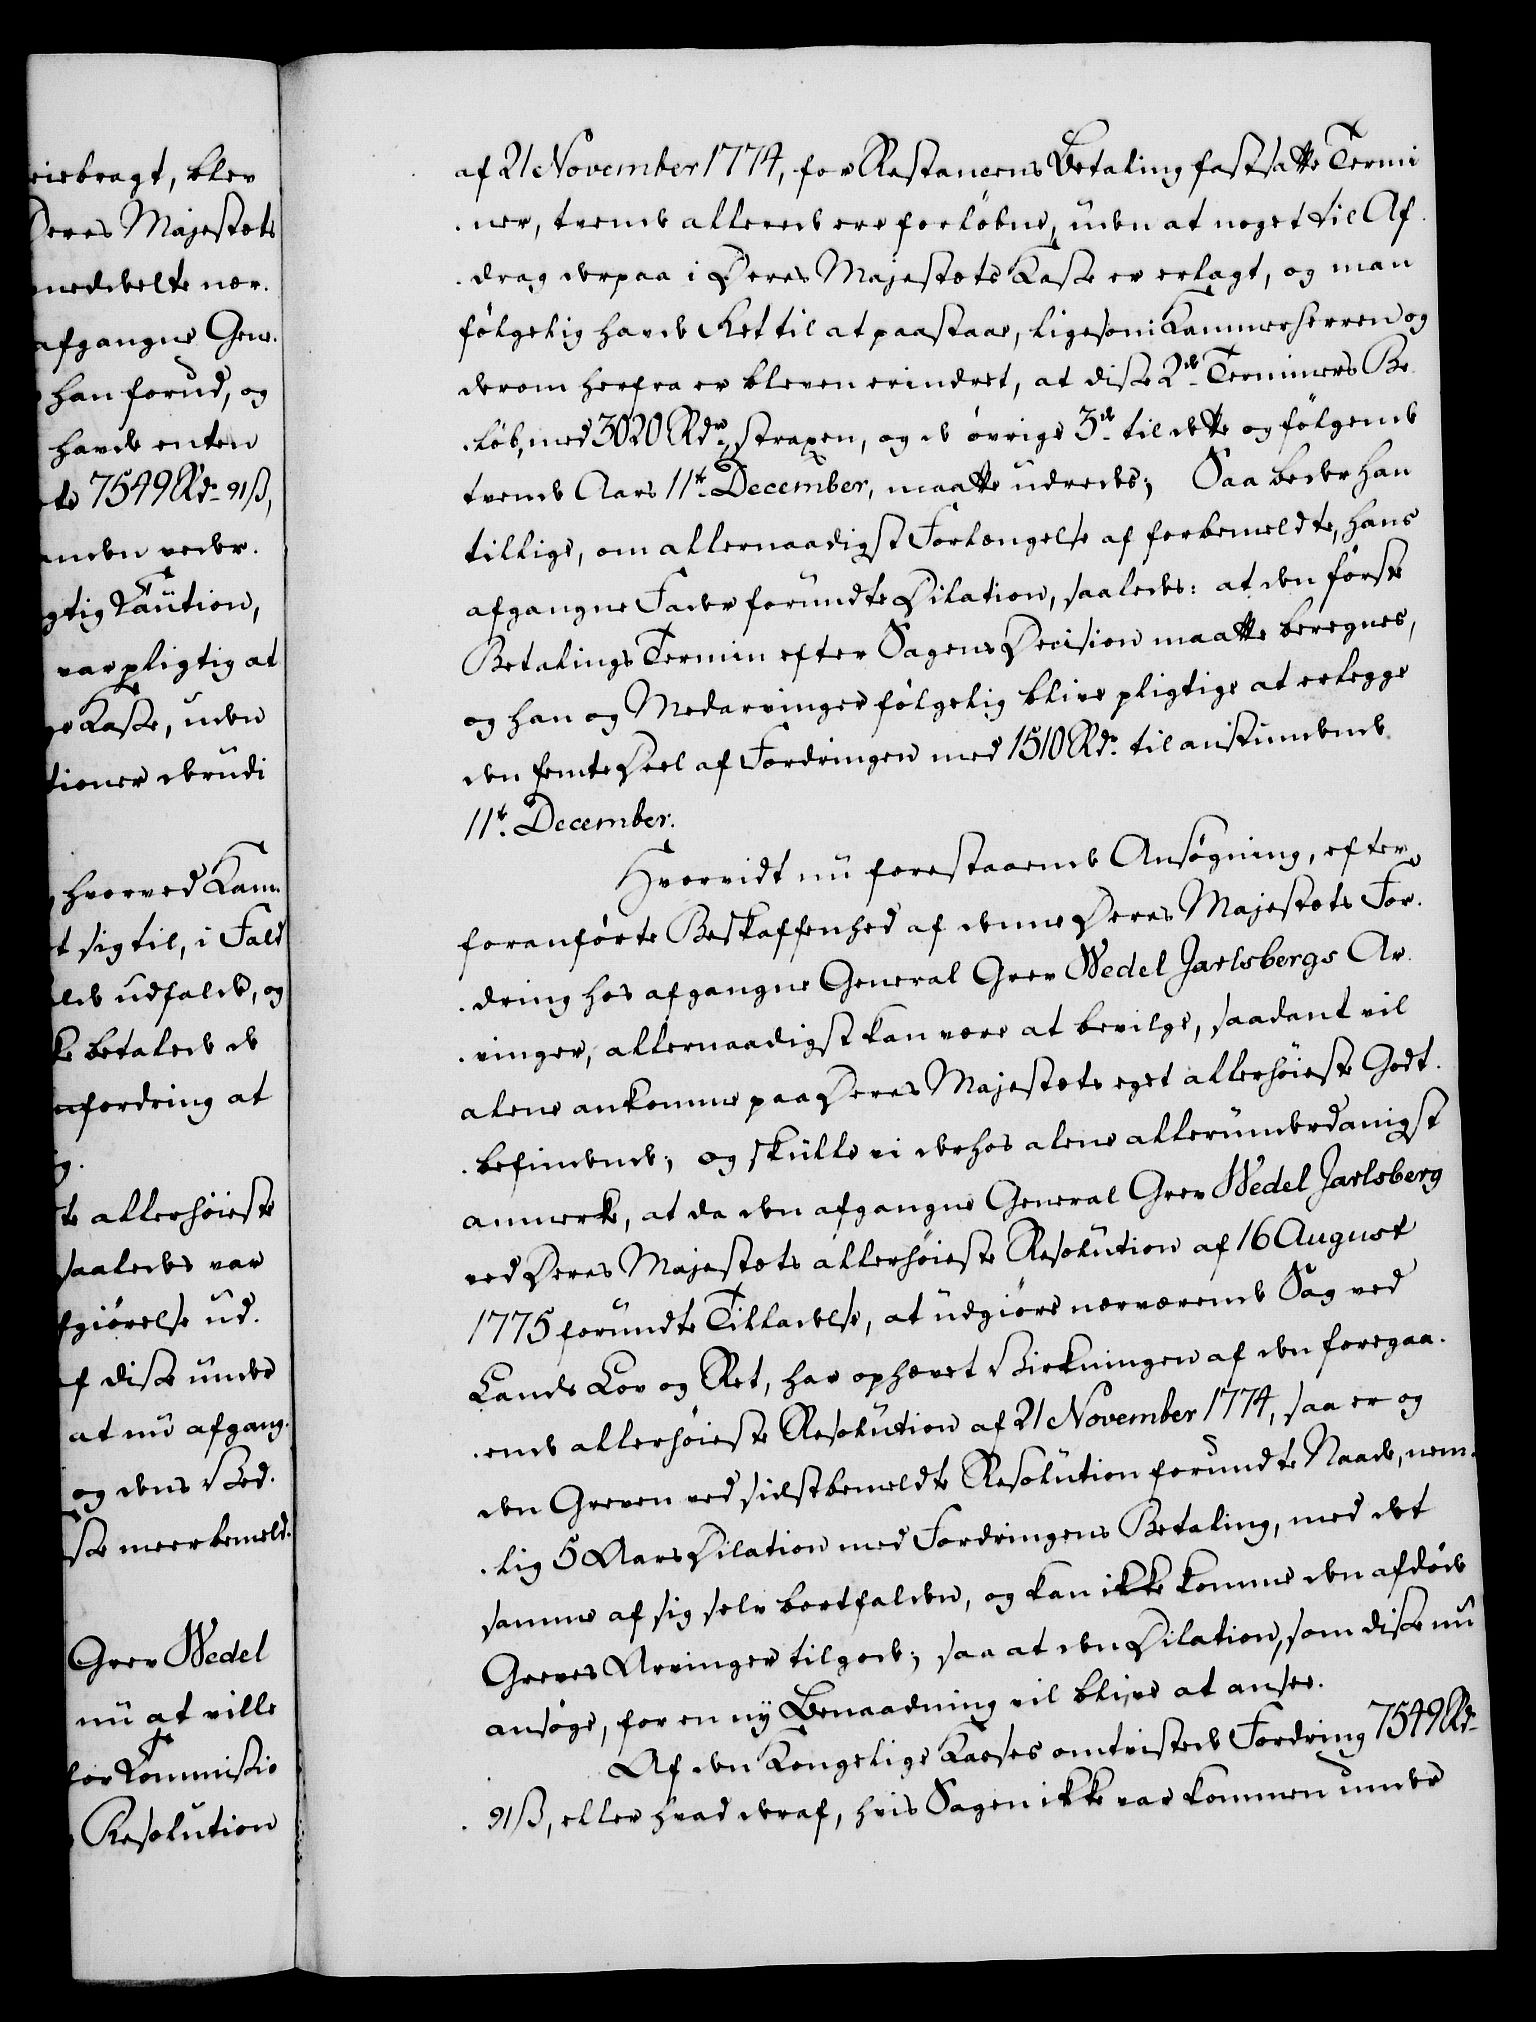 eiebragt, blev
Deres Majestæts
meddelte nær.
afgangne Gene.
han forud, og
havde enten
te 7549 Rd. 91 ß,
anden reder.
gtig Caution,
var pligtig at
ge Kasse, uden
tioner derudi
hvorved Kam.
t sig til, i Fald
lde udfalde, og
ke betalede de
afordring at
g.
te allerhöieste
saaledes var
fgiörelse ud.
f disse unde
at nu afgang.
og dens Bed.
ske meerbemeld.
Grev Wedel
nu at ville
for Kommissio
Resolution
af 21 November 1774, for Restancens Betaling fastsatte Termi
.ner, tvende allerede ere forløbne, uden at noget til Af.
.drag derpaa i Deres Majestæts Kasse er erlagt, og man
følgelig havde Ret til at paastaae, ligesom Kammerherren og
derom herfra er bleven erindret, at disse 2de Terminers Be.
.løb, med 3020 Rdr, straxen, og de øvrige 3de til dette og følgende
tvende Aars 11te December, maatte udredes; Saa beder han
tillige, om allernaadigst Forlængelse af forbemeldte, hans
afgangne Fader forundte Dilation, saaledes: at den første
Betalings Termin efter Sagens Decision maatte beregnes,
og han og Medarvinger følgelig blive pligtige at erlegge
den femte Deel af Fordringen med 1510 Rdr. til anstundende
11te December.
Hvorvidt nu forestaaende Ansøgning, efter
foranførte Beskaffenhed af denne Deres Majestæts For.
.dring hos afgangne General Grev Wedel Jarlsbergs Ar.
.vinger, allernaadigst kan være at bevilge, saadant vil
alene ankomme paa Deres Majestæts eget allerhøieste Godt.
.befindende; og skulle vi derhos alene allerunderdanigst
anmerke, at da den afgangne General Grev Wedel Jarlsberg
ved Deres Majestæts allerhøieste Resolution af 16 August
1775 forundte Tilladelse, at udgiøre nærværende Sag ved
Lands Lov og Ret, har ophævet Virkningen af den foregaa.
.ende allerhøieste Resolution af 21 November 1774, saa er og
den Greven ved sidstbemeldte Resolution forundte Naade, nem.
.lig 5 Aars Dilation med Fordringens Betaling, med det
samme af sig selv bortfalden, og kan ikke komme den afdøde
Greves Arvinger til gode; saa at den Dilation, som disse nu
ansøge, for en ny Benaadning vil blive at ansee.
Af den Kongelige Kasses omtvistede Fordring 7549 Rd.
91 ß, eller hvad deraf, hvis Sagen ikke var kommen under